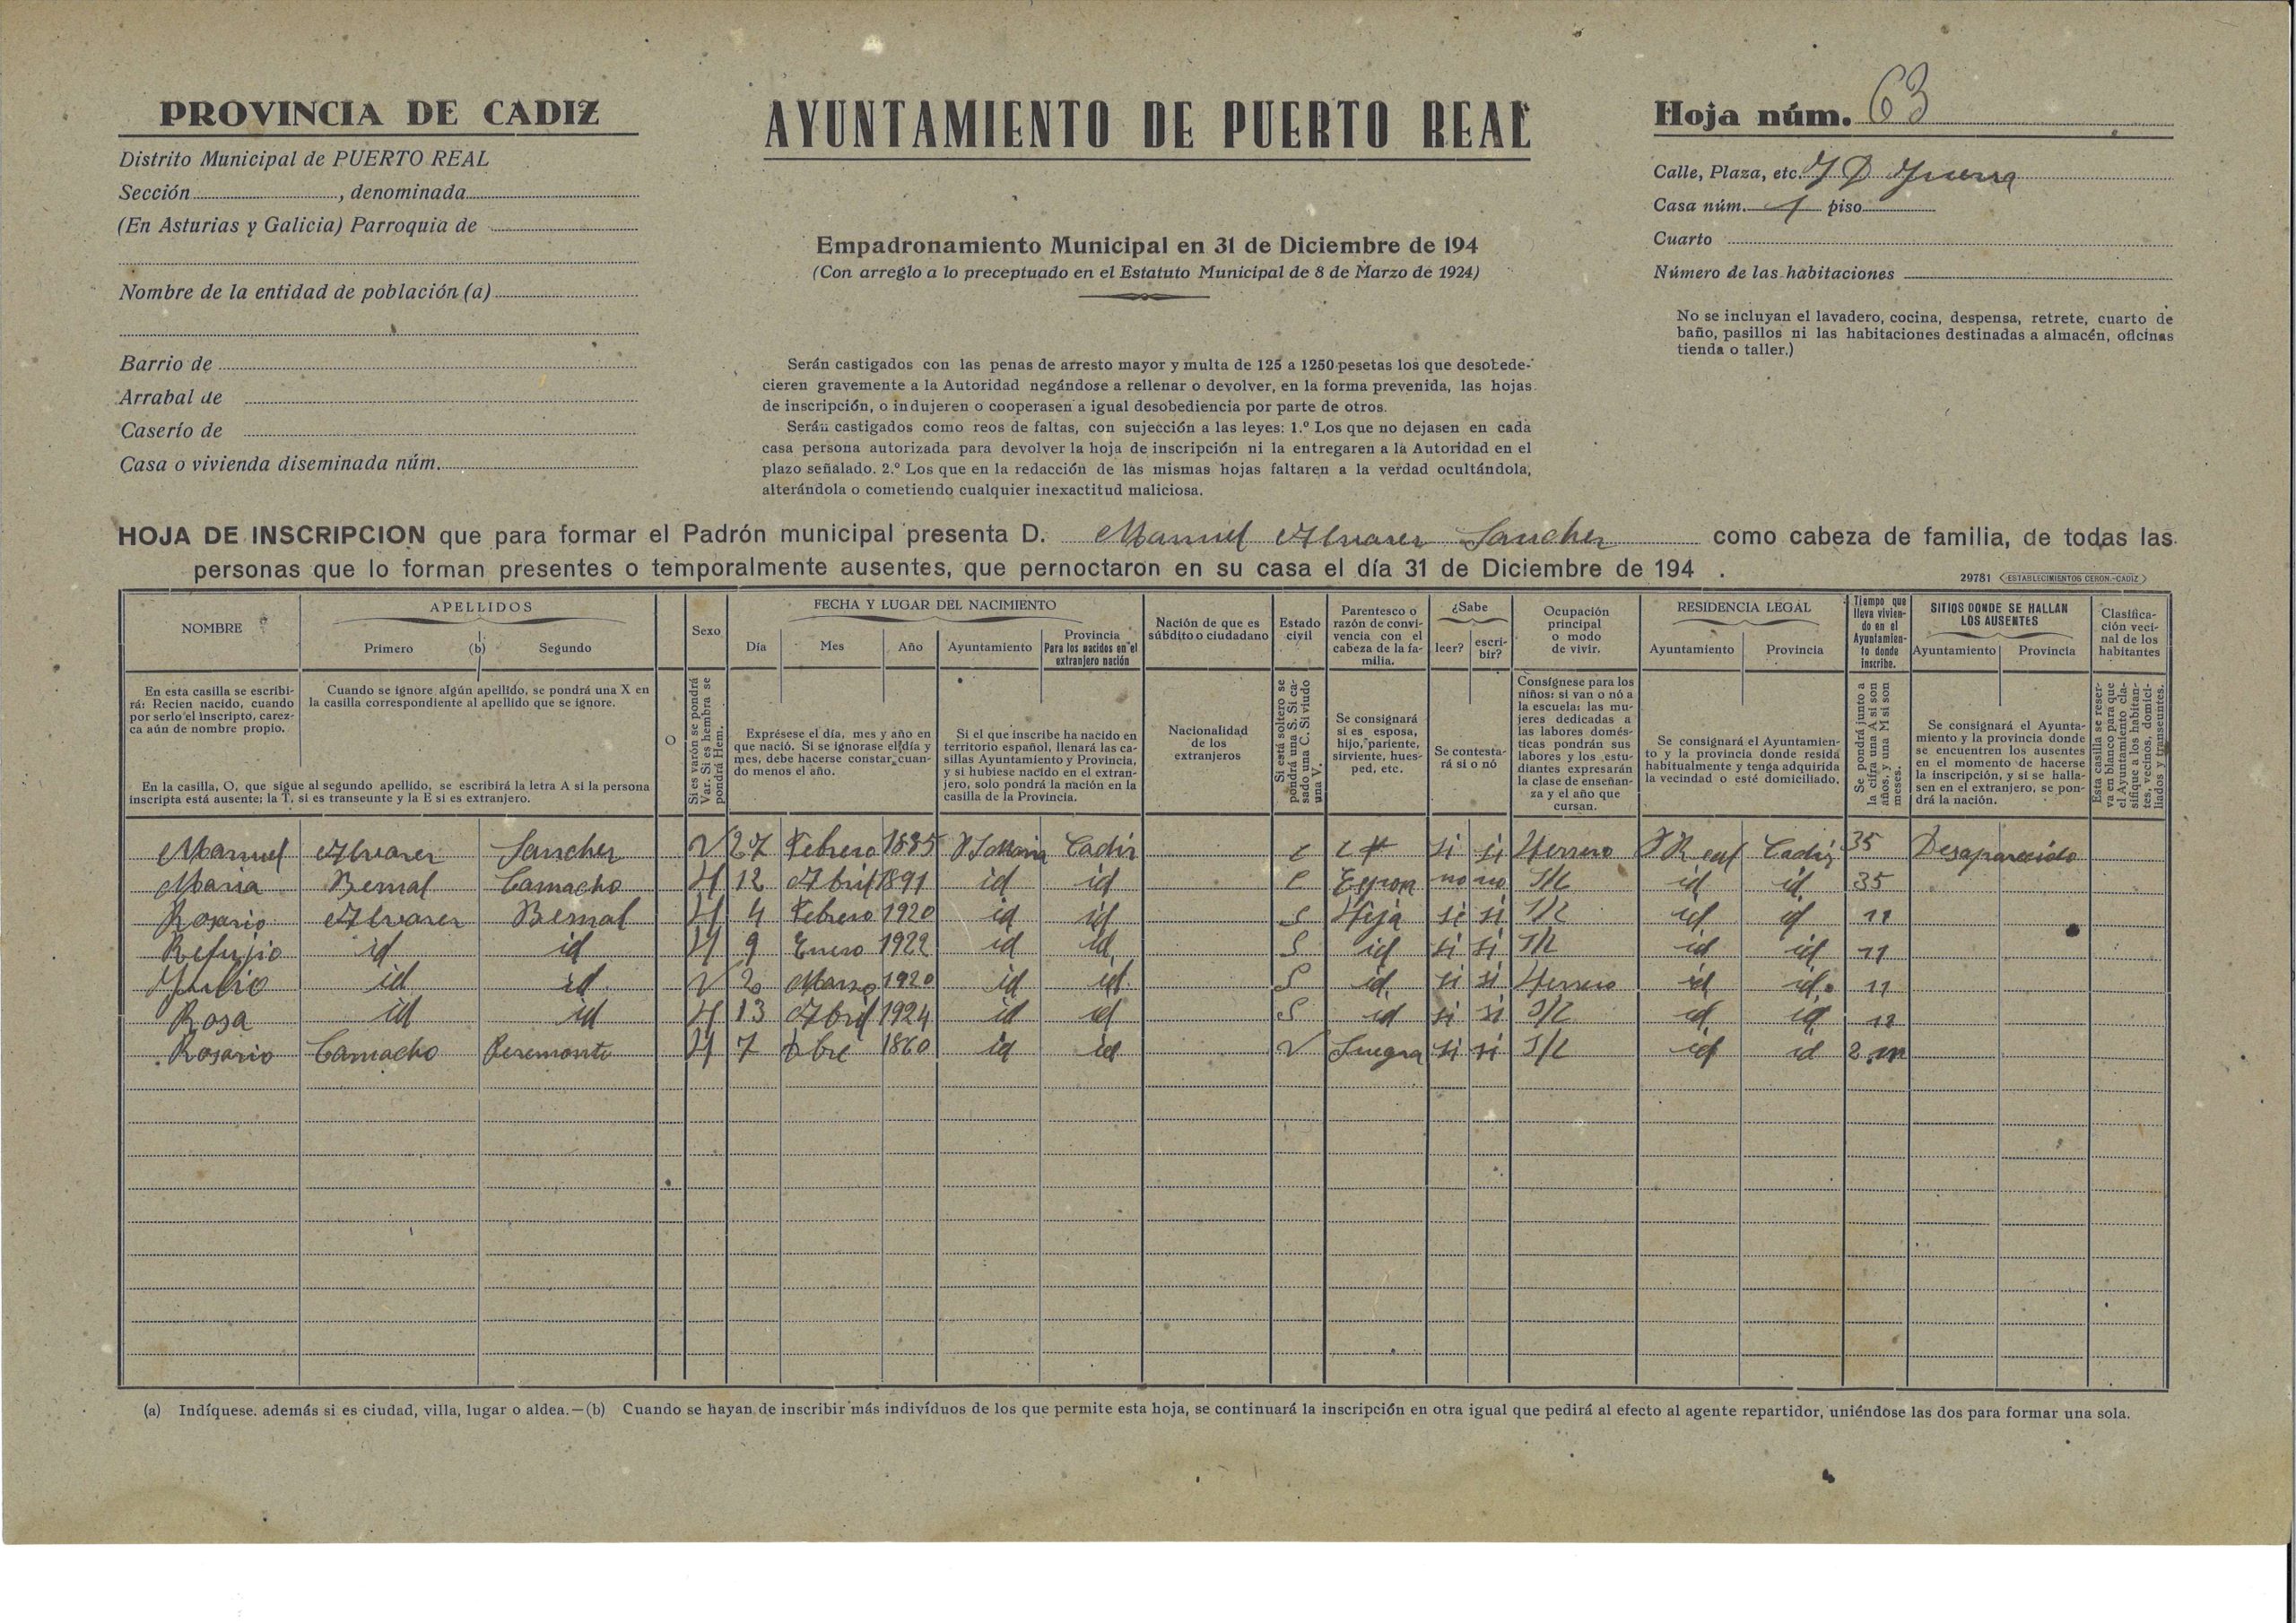 PROVINCIA DE CADIZ
Distrito Municipal de PUERTO REAL
Sección , denominada
(En Asturias y Galicia) Parroquia de
Nombre de la entidad de población (a)
Barrio de
Arrabal de
Caserío de
Casa o vivienda diseminada núm.
AYUNTAMIENTO DE PUERTO REAL
Empadronamiento Municipal en 31 de Diciembre de 194
(Con arreglo a lo preceptuado en el Estatuto Municipal de 8 de Marzo de 1924)
Serán castigados con las penas de arresto mayor y multa de 125 a 1250 pesetas los que desobede-
cieren gravemente a la Autoridad negándose a rellenar o devolver, en la forma prevenida, las hojas
de inscripción, o indujeren o cooperasen a igual desobediencia por parte de otros.
Serán castigados como reos de faltas, con sujección a las leyes: 1.º Los que no dejasen en cada
casa persona autorizada para devolver la hoja de inscripción ni la entregaren a la Autoridad en el
plazo señalado. 2.º Los que en la redacción de las mismas hojas faltaren a la verdad ocultándola,
alterándola o cometiendo cualquier inexactitud maliciosa.
Hoja núm. 63
Calle, Plaza, etc. J D Guerra
Casa núm. 1 piso
Cuarto
Número de las habitaciones
No se incluyan el lavadero, cocina, despensa, retrete, cuarto de
baño, pasillos ni las habitaciones destinadas a almacén, oficinas
tienda o taller.)
HOJA DE INSCRIPCION que para formar el Padrón municipal presenta D. Manuel Alvarez Sanchez como cabeza de familia, de todas las
personas que lo forman presentes o temporalmente ausentes, que pernoctaron en su casa el día 31 de Diciembre de 194 .
29781 (ESTABLECIMIENTOS CERON.-CADIZ)
NOMBRE
APELLIDOS
Primero (b) Segundo
O
Sexo
FECHA Y LUGAR DEL NACIMIENTO
Día Mes Año Ayuntamiento
Provincia
Para los nacidos en el
extranjero nación
Nación de que es
súbdito o ciudadano
Estado
civil
Parentesco o
razón de convi-
vencia con el
cabeza de la fa-
milia.
¿Sabe
leer? escri-
bir?
Ocupación
principal
o modo
de vivir.
RESIDENCIA LEGAL
Ayuntamiento Provincia
Tiempo que
lleva vivien-
do en el
Ayuntamien-
to donde
inscribe.
SITIOS DONDE SE HALLAN
LOS AUSENTES
Ayuntamiento Provincia
Clasifica-
ción veci-
nal de los
habitantes
En esta casilla se escribi-
rá: Recien nacido, cuando
por serlo el inscripto, carez-
ca aún de nombre propio.
Cuando se ignore algún apellido, se pondrá una X en
la casilla correspondiente al apellido que se ignore.
En la casilla, O, que sigue al segundo apellido, se escribirá la letra A si la persona
inscripta está ausente; la T, si es transeunte y la E si es extranjero.
Si es varón se pondrá
Var. Si es hembra se
pondrá Hem.
Exprésese el día, mes y año en
que nació. Si se ignorase el día y
mes, debe hacerse constar cuan-
do menos el año.
Si el que inscribe ha nacido en
territorio español, llenará las ca-
sillas Ayuntamiento y Provincia,
y si hubiese nacido en el extran-
jero, solo pondrá la nación en la
casilla de la Provincia.
Nacionalidad
de los
extranjeros
Si está soltero se
pondrá una S. Si ca-
sado una C. Si viudo
una V.
Se consignará
si es esposa,
hijo, pariente,
sirviente, hues-
ped, etc.
Se contesta-
rá si o nó
Consígnese para los
niños: si van o nó a
la escuela: las mu-
jeres dedicadas a
las labores domés-
ticas pondrán sus
labores y los estu-
diantes expresarán
la clase de enseñan-
za y el año que
cursan.
Se consignará el Ayuntamien-
to y la provincia donde resida
habitualmente y tenga adquirida
la vecindad o esté domiciliado.
Se pondrá junto a
la cifra una A si son
años, y una M si son
meses.
Se consignará el Ayunta-
miento y la provincia donde
se encuentren los ausentes
en el momento de hacerse
la inscripción, y si se halla-
sen en el extranjero, se pon-
drá la nación.
Esta casilla se reser-
va en blanco para que
el Ayuntamiento cla-
sifique a los habitan-
tes, vecinos, domici-
liados y transeuntes.
Manuel Alvarez Sanchez V 27 Febrero 1885 P S Maria Cadiz C C F si si Herrero P Real Cadiz 35 Desaparecido
Maria Bernal Camacho H 12 Abril 1891 id id C Espoza no no S/L id id 35
Rosario Alvarez Bernal H 4 Febrero 1920 id id S Hija si si S/L id id 11
Refujio id id H 9 Enero 1922 id id S id si si S/L id id 11
Julio id id V 2 Marzo 1920 id id S id si si Herrero id id 11
Rosa id id H 13 Abril 1924 id id S id si si S/L id id 12
Rosario Camacho H 7 1860 id id V Suegra si si S/L id id 2 m
(a) Indíquese. además si es ciudad, villa, lugar o aldea.—(b) Cuando se hayan de inscribir más indivíduos de los que permite esta hoja, se continuará la inscripción en otra igual que pedirá al efecto al agente repartidor, uniéndose las dos para formar una sola.